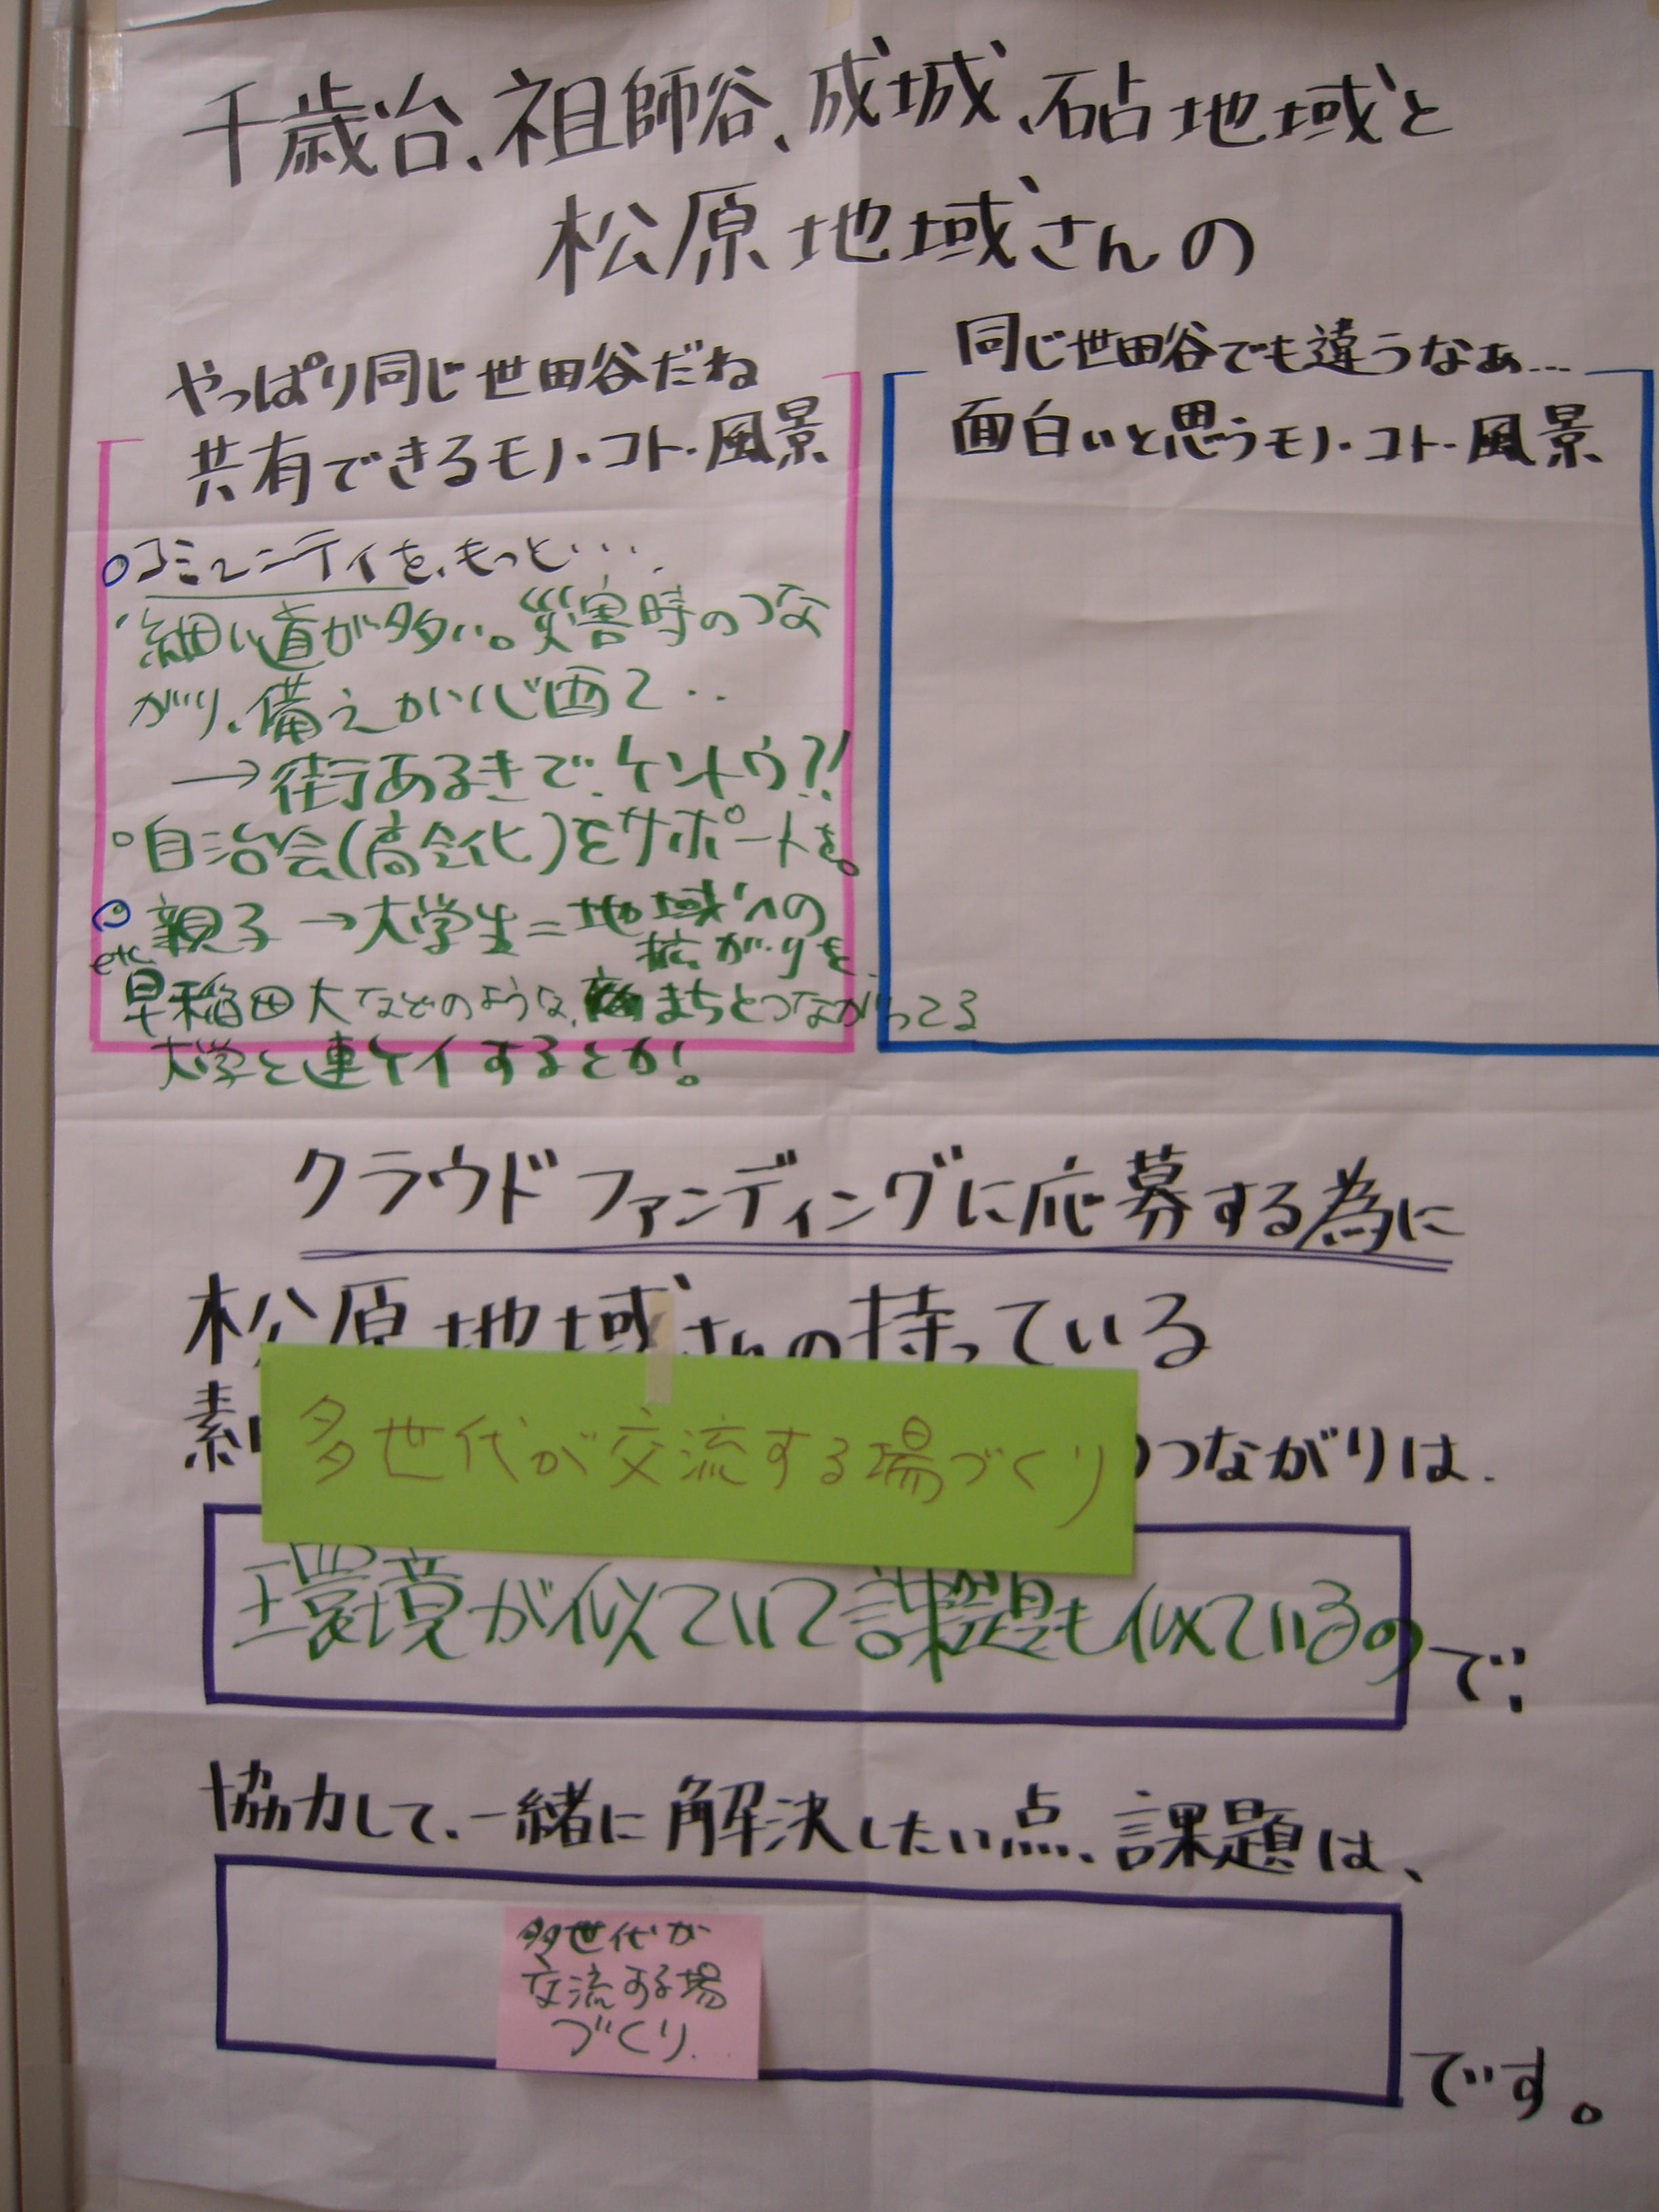 千歳台、祖師谷、成城、砧地域と
松原地域さんの
やっぱり同じ世田谷だね
共有できるモノ・コト・風景
○コミュニティを、もっと・・・
細い道が多い。災害時のつな
がり、備えが心配で・・
→街あるきで、ケントウ?!
○自治会(高令化)をサポートを。
○親子→大学生=地域への
拡がりを、
etc
早稲田大などのような、まちとつながってる
大学と連ケイするとか!
同じ世田谷でも違うなぁ…
面白いと思うモノ・コト・風景
クラウドファンディングに応募する為に
松原地域さんの持っている
素
多世代が交流する場づくり
つながりは、
環境が似ていて課題も似ているので、
協力して、一緒に解決したい点、課題は、
多世代が
交流する場
づくり...
です。